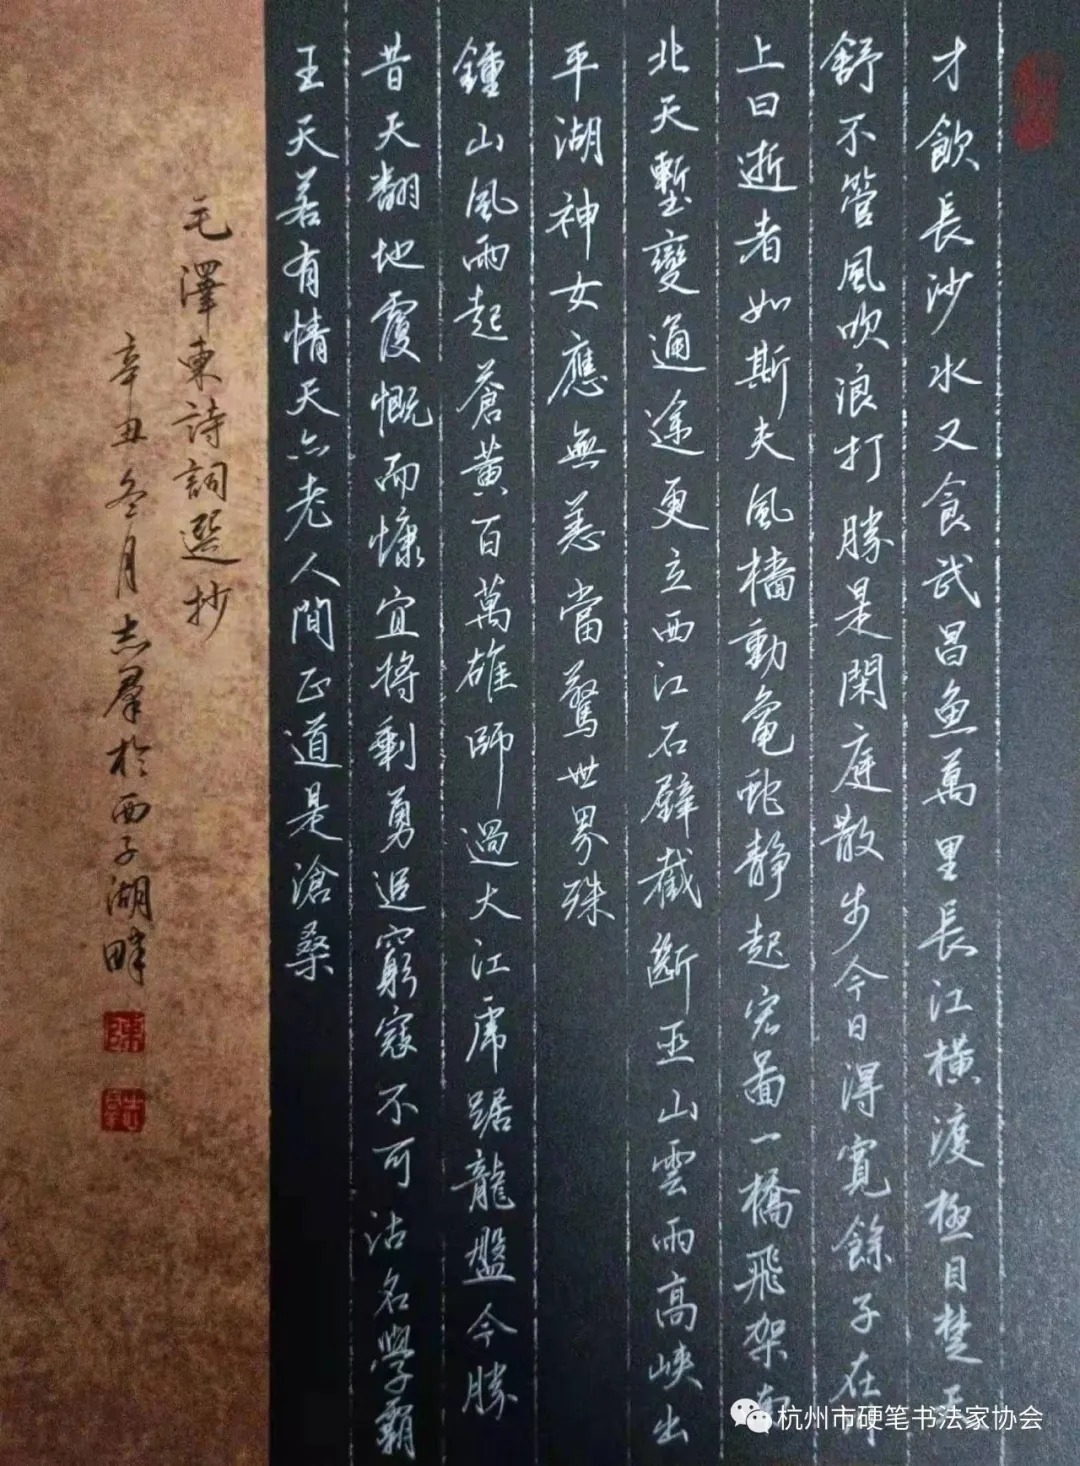 才飲長沙水又食武昌魚萬里長江橫渡極目楚天
舒不管風吹浪打勝是閑庭散步今日得寬餘子在川
上曰逝者如斯夫風檣動龜蛇静起宏圖一橋飛架南
北天塹變通途更立西江石壁截斷巫山雲雨高峽出
平湖神女應無恙當驚世界殊
鍾山風雨起蒼黄百萬雄師過大江虎踞龍盤今勝
昔天翻地覆慨而慷宜將剩勇追窮寇不可沽名學霸
王天若有情天亦老人間正道是滄桑
毛澤東詩詞選抄
辛丑冬月志羣於西子湖畔
陳
杭州市硬笔书法家协会